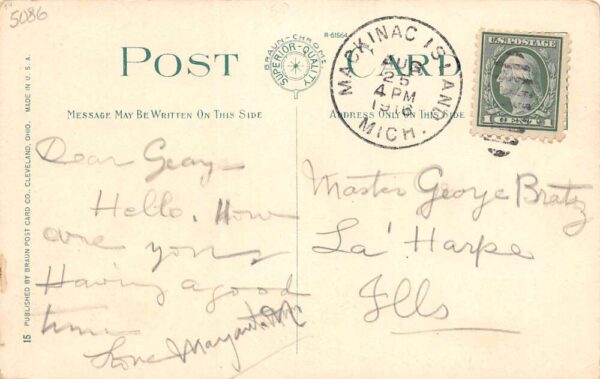 5086
POST CARD
BRAUN-CHROME
SUPERIOR-QUALITY
R-61564
MACKINAC ISLAND
AUG
25
4 PM
1916
MICH.
U.S. POSTAGE
1 CENT 1
MESSAGE MAY BE WRITTEN ON THIS SIDE
ADDRESS ONLY ON THIS SIDE
Dear George
Hello. How
are you
Having a good
time
Love Margaret
Master George Bratz
La' Harpe
Ills
15 PUBLISHED BY BRAUN POST CARD CO., CLEVELAND, OHIO. MADE IN U.S.A.